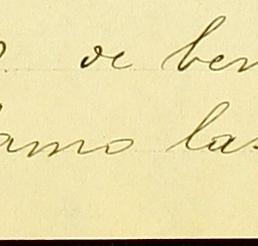 de ben
amo las